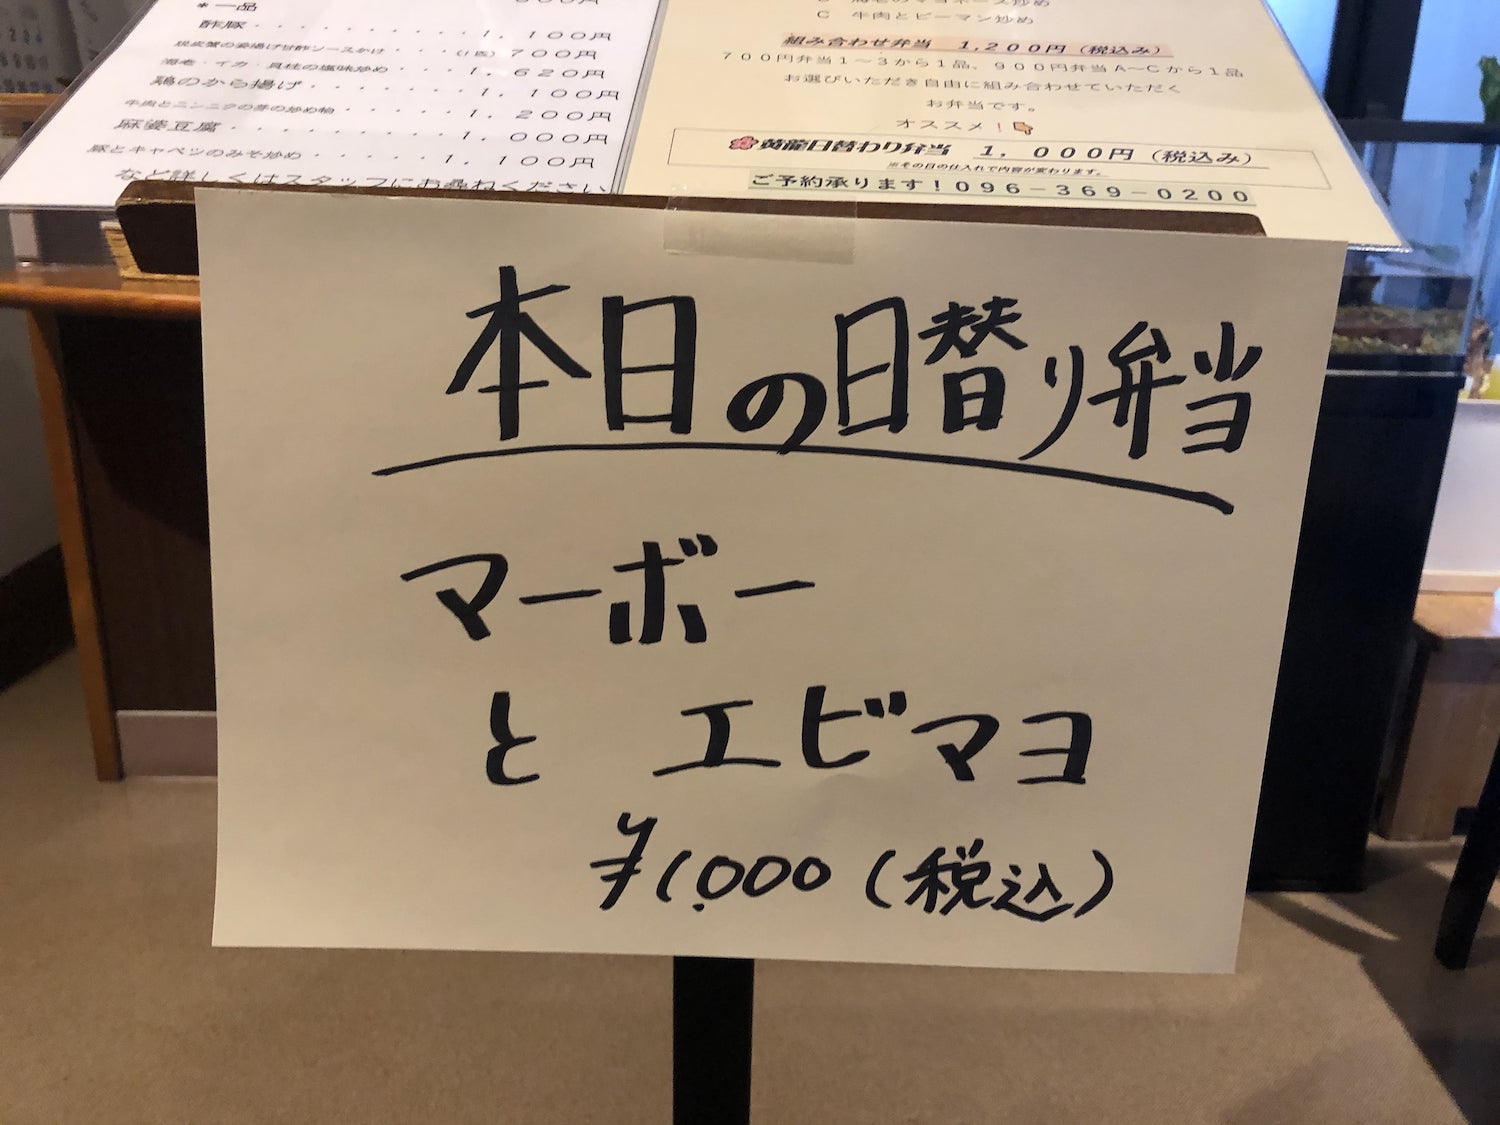 *一品
酢豚・・・・・・・・・・１，１００円
脱皮蟹の姿揚げ甘酢ソースかけ・・・(1匹) ７００円
海老・イカ・貝柱の塩味炒め・・・・１，６２０円
鶏のから揚げ・・・・・・・・１，１００円
牛肉とニンニクの芽の炒め物・・・・・１，２００円
麻婆豆腐・・・・・・・・・１，０００円
豚とキャベツのみそ炒め・・・・・１，１００円
など詳しくはスタッフにお尋ねください
C 牛肉とピーマン炒め
組み合わせ弁当 １,２００円（税込み）
７００円弁当１～３から１品、９００円弁当Ａ～Ｃから１品
お選びいただき自由に組み合わせていただく
お弁当です。
オススメ！
黄龍日替わり弁当 １，０００円（税込み）
※その日の仕入れで内容が変わります。
ご予約承ります！０９６－３６９－０２００
本日の日替り弁当
マーボー
と エビマヨ
¥1,000（税込）